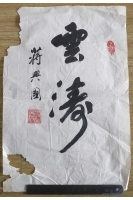 雲濤
蔣興國